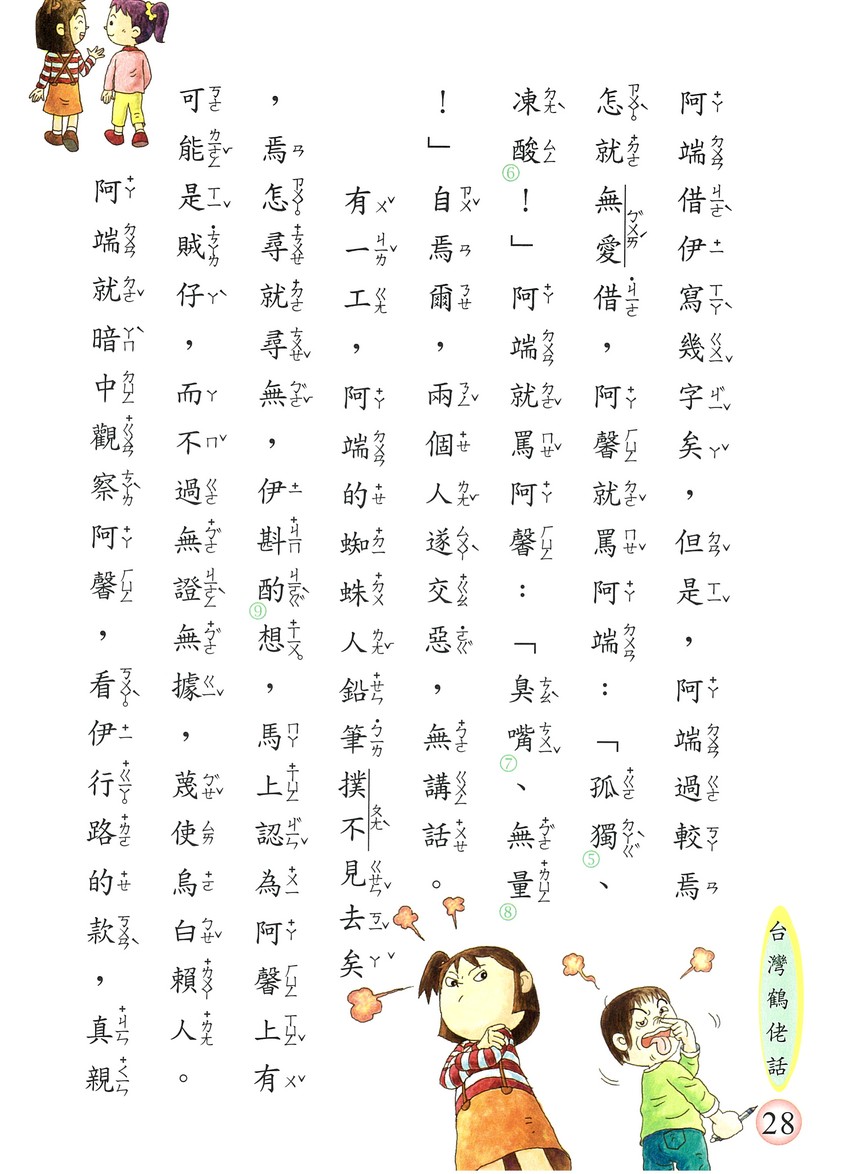 阿端借伊寫幾字矣，但是，阿端過較焉
怎就無愛借，阿馨就罵阿端：「孤獨⑤、
凍酸⑥！」阿端就罵阿馨：「臭嘴⑦、無量⑧
！」自焉爾，兩個人遂交惡，無講話。
有一工，阿端的蜘蛛人鉛筆撲不見去矣
，焉怎尋就尋無，伊斟酌⑨想，馬上認為阿馨上有
可能是賊仔，而不過無證無據，蔑使烏白賴人。
阿端就暗中觀察阿馨，看伊行路的款，真親
台灣鶴佬話
28